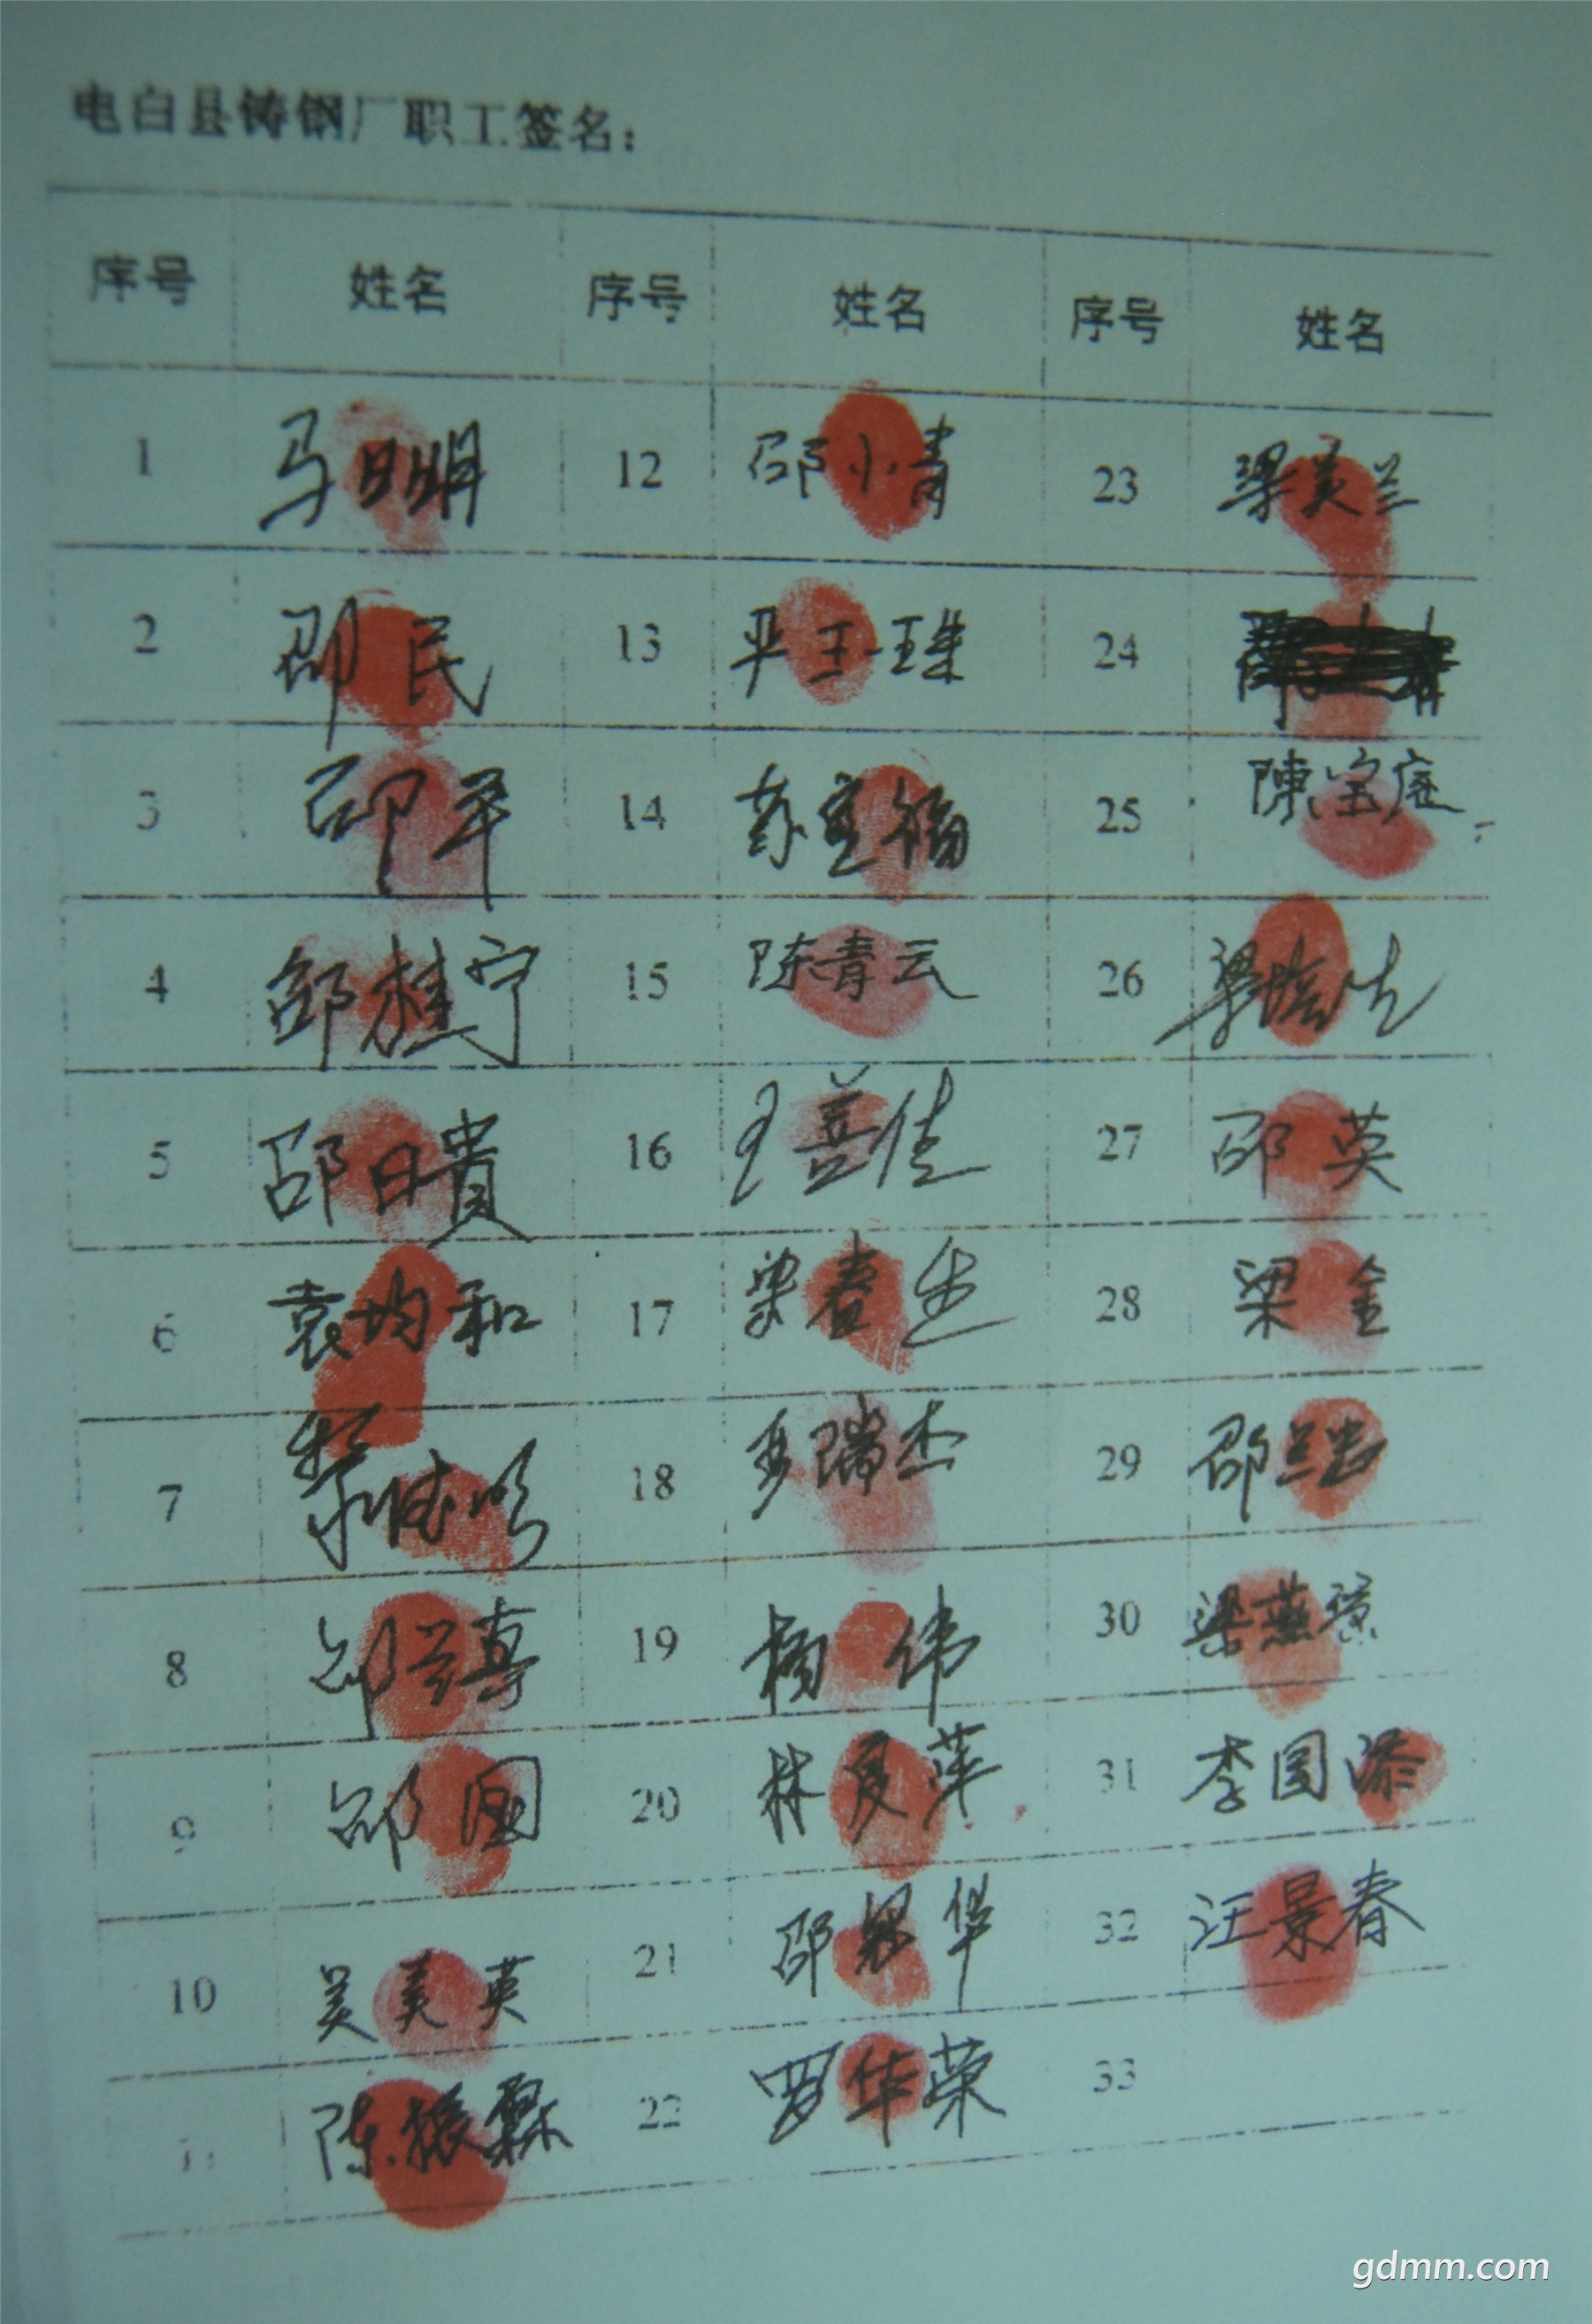 电白县铸钢厂职工签名：
序号 姓名 序号 姓名 序号 姓名
1 马日明 12 邵小青 23 梁美兰
2 邵民 13 玉珠 24
3 邵军 14 苏宝福 25 陳宝
4 邵桂宁 15 陈青云 26 梁
5 邵日贵 16 王善佳 27 邵英
6 袁均和 17 梁春生 28 梁金
7 18 瑞杰 29 邵兰
8 邵兰 19 杨伟 30 梁燕
9 邵国 20 林夏萍 31 李国添
10 吴美英 21 邵 华 32 汪景春
11 陈振霖 22 罗华荣 33
gdmm.com